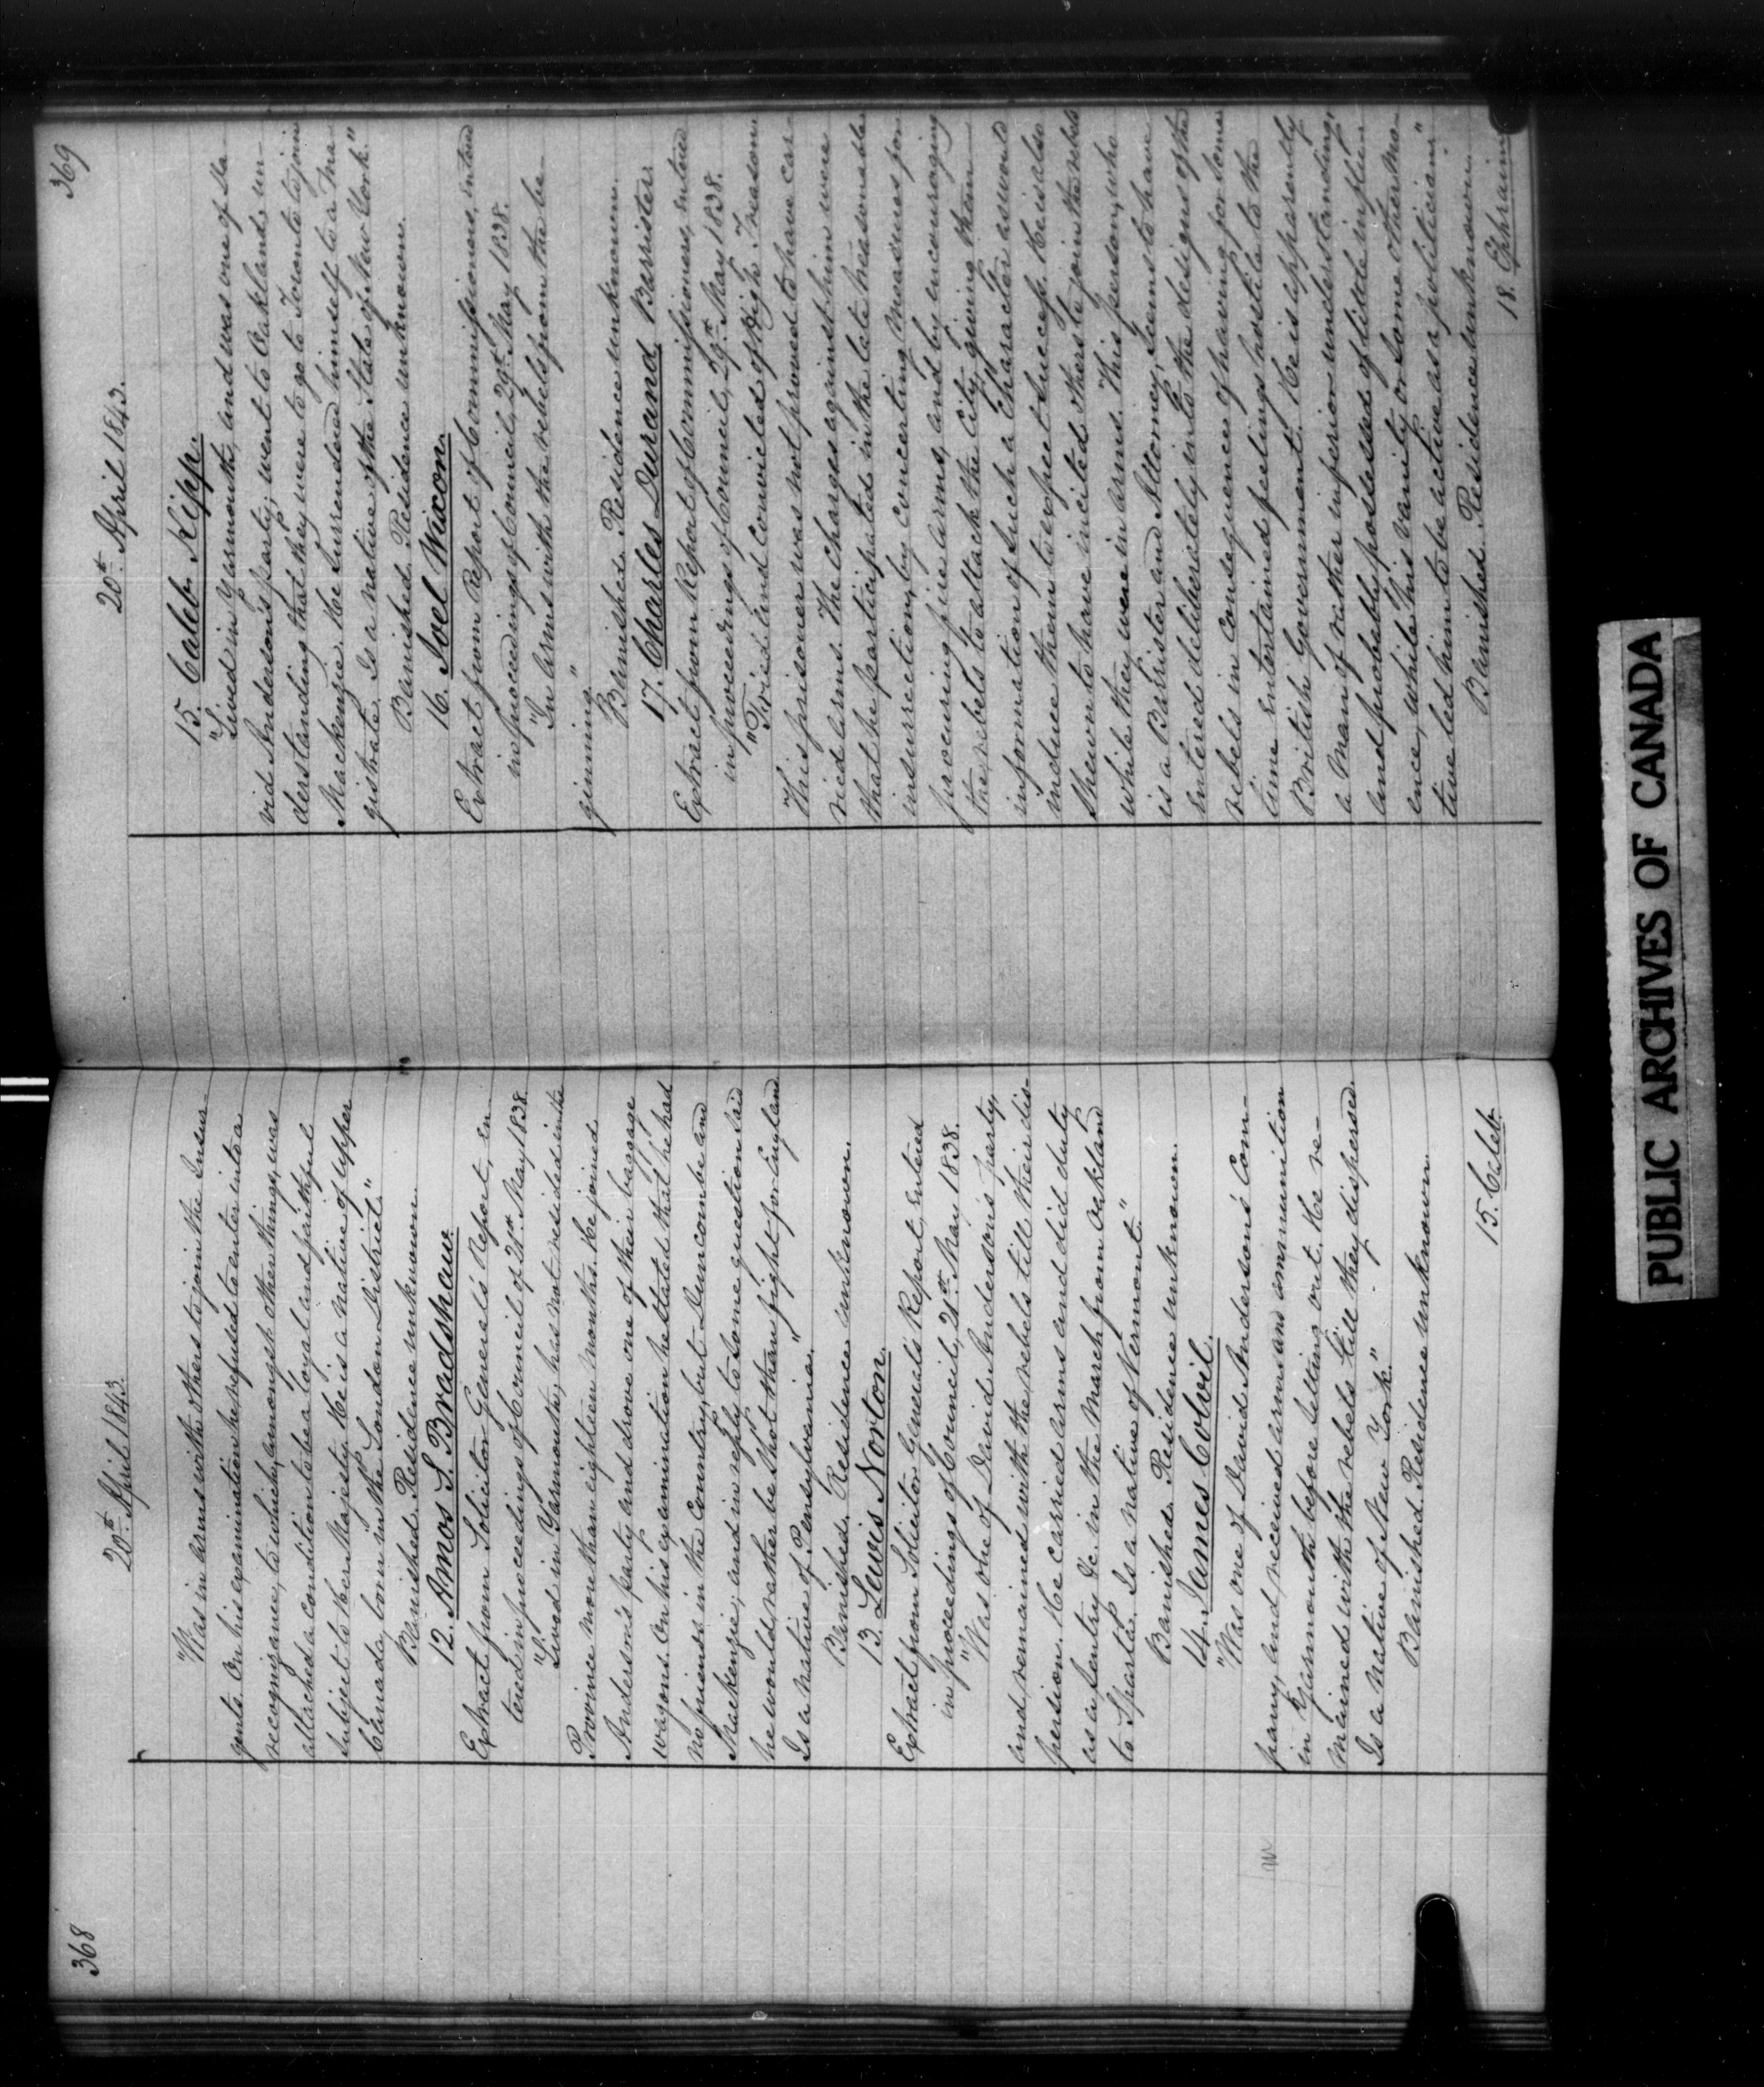 368
20th April 1843.
"Was in arms with others to join the Insur-
gents. On his examination he refused to enter into a
recognizance, to which, amongst other things, was
attached a condition to be a loyal and faithful
subject to Her Majesty. He is a native of Upper
Canada, born in the London District."
Banished. Residence unknown.
12. Amos S. Bradshaw.
Extract from Solicitor General's Report, en-
tered in proceedings of Council of 21st May 1838
"Lived in Yarmouth, has not resided in the
Province more than eighteen months. He joined
Anderson's party and drove one of their baggage
wagons. On his examination he stated that he had
no friends in the Country, but Duncombe and
Mackenzie; and in reply to some question said
he would rather be shot than fight for England
Is a native of Pensylvania."
Banished. Residence unknown.
13. Lewis Norton.
Extract from Solicitor General's Report, entered
in proceedings of Council, 21st May 1838.
"Was one of David Anderson's party,
and remained with the rebels till their dis-
persion. He carried arms and did duty
as a sentry &c. in the march from Oakland
to Sparta. Is a native of Vermont."
Banished. Residence unknown.
14. James Colvil.
"Was one of David Anderson's Com-
pany, and received arms and ammunition
in Yarmouth before setting out. He re-
mained with the rebels till they dispersed.
Is a native of New York."
Banished. Residence unknown.
15. Caleb.
369
20th April 1843.
15. Caleb Kipp.
"Lived in Yarmouth, and was one of Da-
vid Anderson's party, went to Oakland, un-
derstanding that they were to go to Toronto to join
Mackenzie. He surrendered himself to a Ma-
gistrate. Is a native of the State of New York."
Banished. Residence unknown.
16. Joel Wixon.
Extract from Report of Commissioners, entered
in proceedings of Council, 29th May 1838.
"In arms with the rebels from the be-
ginning."
Banished. Residence unknown.
17. Charles Durand, Barrister.
Extract from Report of Commissioners, entered
in proceedings of Council, 29th May 1838.
"Tried and Convicted of High Treason.
This prisoner was not proved to have car-
ried Arms. The charges against him were
that he participated in the late treasonable
insurrection, by concerting measures for
procuring fire arms, and by encouraging
the rebels to attack the City, giving them
information of such a Character as would
induce them to expect success. He is also
shewn to have incited others to join the rebels
while they were in arms. This person, who
is a Barrister and Attorney, seems to have
entered deliberately into the designs of the
rebels in consequence of having for some
time entertained feelings hostile to the
British Government. He is apparently
a man of rather inferior understanding,
and probably possessed of little influ-
ence, while his vanity or some other mo-
tive led him to be active as a politician."
Banished. Residence unknown.
18. Ephraim
PUBLIC ARCHIVES OF CANADA